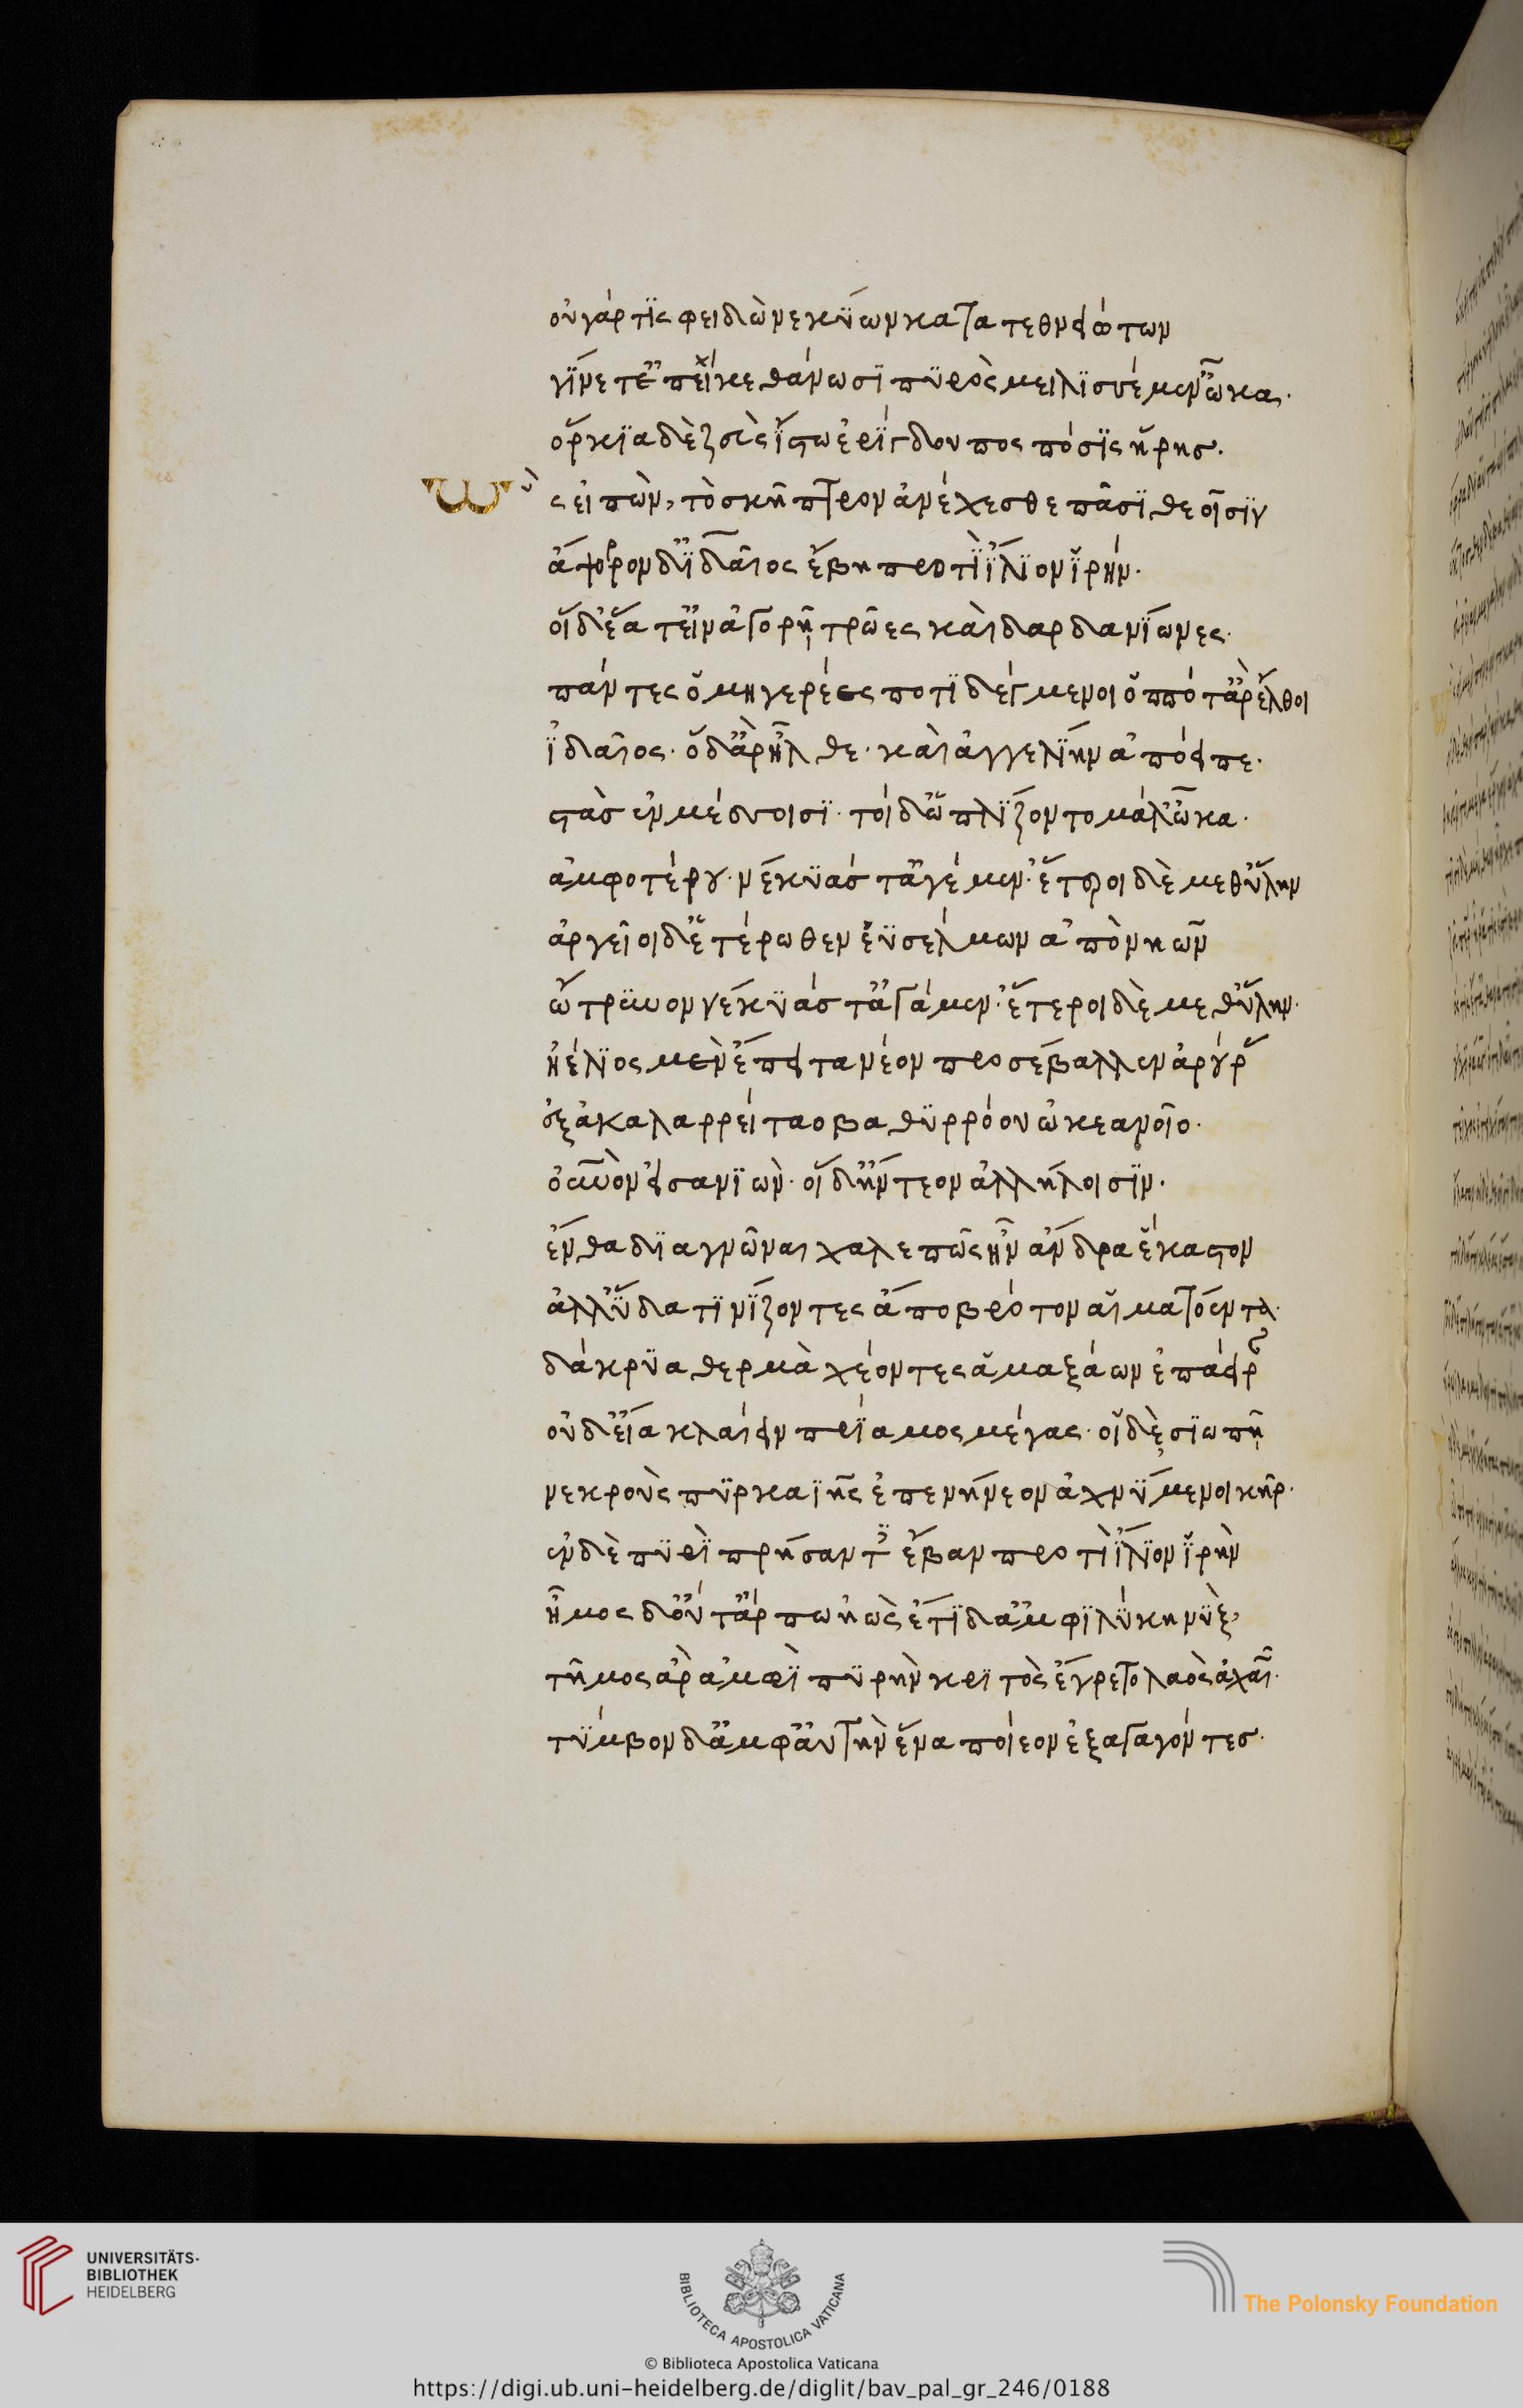 οὐ γάρ τις φειδὼ νεκύων κατατεθνειώτων
γίνετ' ἐπεί κε θάνωσι πυρὸς μειλισσέμεν ὦκα.
ὅρκια δὲ ζεὺς ἴστω ἐρίγδουπος πόσις ἥρης.
Ὣς εἰπὼν, τὸ σκῆπτρον ἀνέχεσθε πᾶσι θεοῖσιν
ἄψορρον δ' ἰδαῖος ἔβη προτὶ ἴλιον ἱρήν.
οἱ δ' ἕατ' εἰν ἀγορῆ τρῶες καὶ δαρδανίωνες.
πάντες ὁμηγερέες ποτιδέγμενοι ὁππότ' ἂρ ἔλθοι
ἰδαῖος. ὁ δ' ἂρ ἦλθε. καὶ ἀγγελίην ἀπόειπε.
στὰς ἐν μέσσοισι. τοὶ δ' ὡπλίζοντο μάλ' ὦκα.
ἀμφοτέρου. νέκυάς τ' ἀγέμεν. ἕτεροι δὲ μεθ' ὕλην
ἀργεῖοι δ' ἑτέρωθεν ἐϋσέλμων ἀπὸ νηῶν
ὤτρυνον νέκυάς τ' ἀγέμεν. ἕτεροι δὲ μεθ' ὕλην.
ἠέλιος μὲν ἔπειτα νέον προσέβαλλεν ἀρούρας
ἐξ ἀκαλαρρείταο βαθυρρόου ὠκεανοῖο.
οὐρανὸν εἰσανιών. οἱ δ' ἤντεον ἀλλήλοισιν.
ἔνθα διαγνῶναι χαλεπῶς ἦν ἄνδρα ἕκαστον
ἀλλ' ὕδατι νίζοντες ἄπο βρότον αἱματόεντα.
δάκρυα θερμὰ χέοντες ἁμαξάων ἐπάειραν
οὐδ' εἴα κλαίειν πρίαμος μέγας. οἱ δὲ σιωπῆ
νεκροὺς πυρκαϊῆς ἐπενήνεον ἀχνύμενοι κῆρ.
ἐν δὲ πυρὶ πρήσαντ' ἔβαν προτὶ ἴλιον ἱρὴν
ἦμος δ' οὔτ' ἄρ πω ἠὼς ἔτι δ' ἀμφιλύκη νὺξ,
τῆμος ἂρ ἀμφὶ πυρὴν κριτὸς ἔγρετο λαὸς ἀχαιῶν.
τύμβον δ' ἀμφ' αὐτὴν ἕνα ποίεον ἐξαγαγόντες.
UNIVERSITÄTS-
BIBLIOTHEK
HEIDELBERG
BIBLIOTECA APOSTOLICA VATICANA
The Polonsky Foundation
© Biblioteca Apostolica Vaticana
https://digi.ub.uni-heidelberg.de/diglit/bav_pal_gr_246/0188